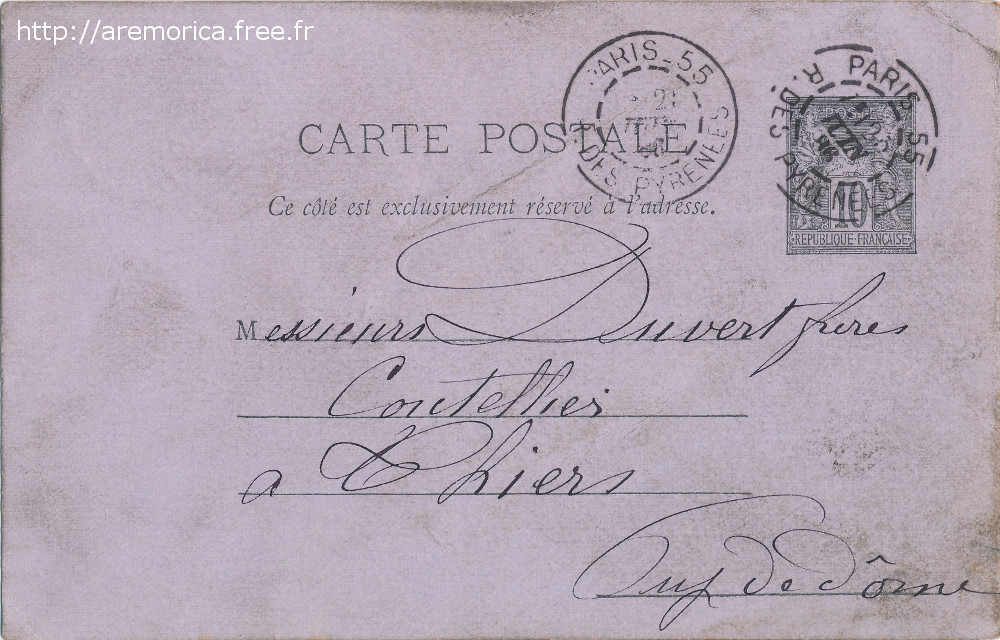 http://aremorica.free.fr
PARIS - 55
R. DES PYRENEES
PARIS 55
R. DES PYRENEES
POSTE
10
REPUBLIQUE FRANÇAISE
CARTE POSTALE
Ce côté est exclusivement réservé à l'adresse.
Messieurs Duvert frères
Coutelliers
a Thiers
Puy de Dôme